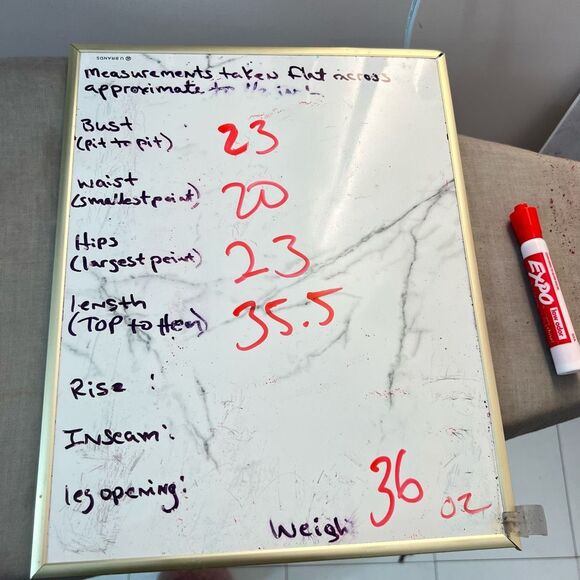 U BRANDS
measurements taken flat across
approximate
Bust
(pit to pit) 23
waist
(smallest point) 20
Hips
(largest point) 23
length
(TOP to Hem) 35.5
Rise :
Inseam:
leg opening:
Weigh 36 oz
EXPO
low odor